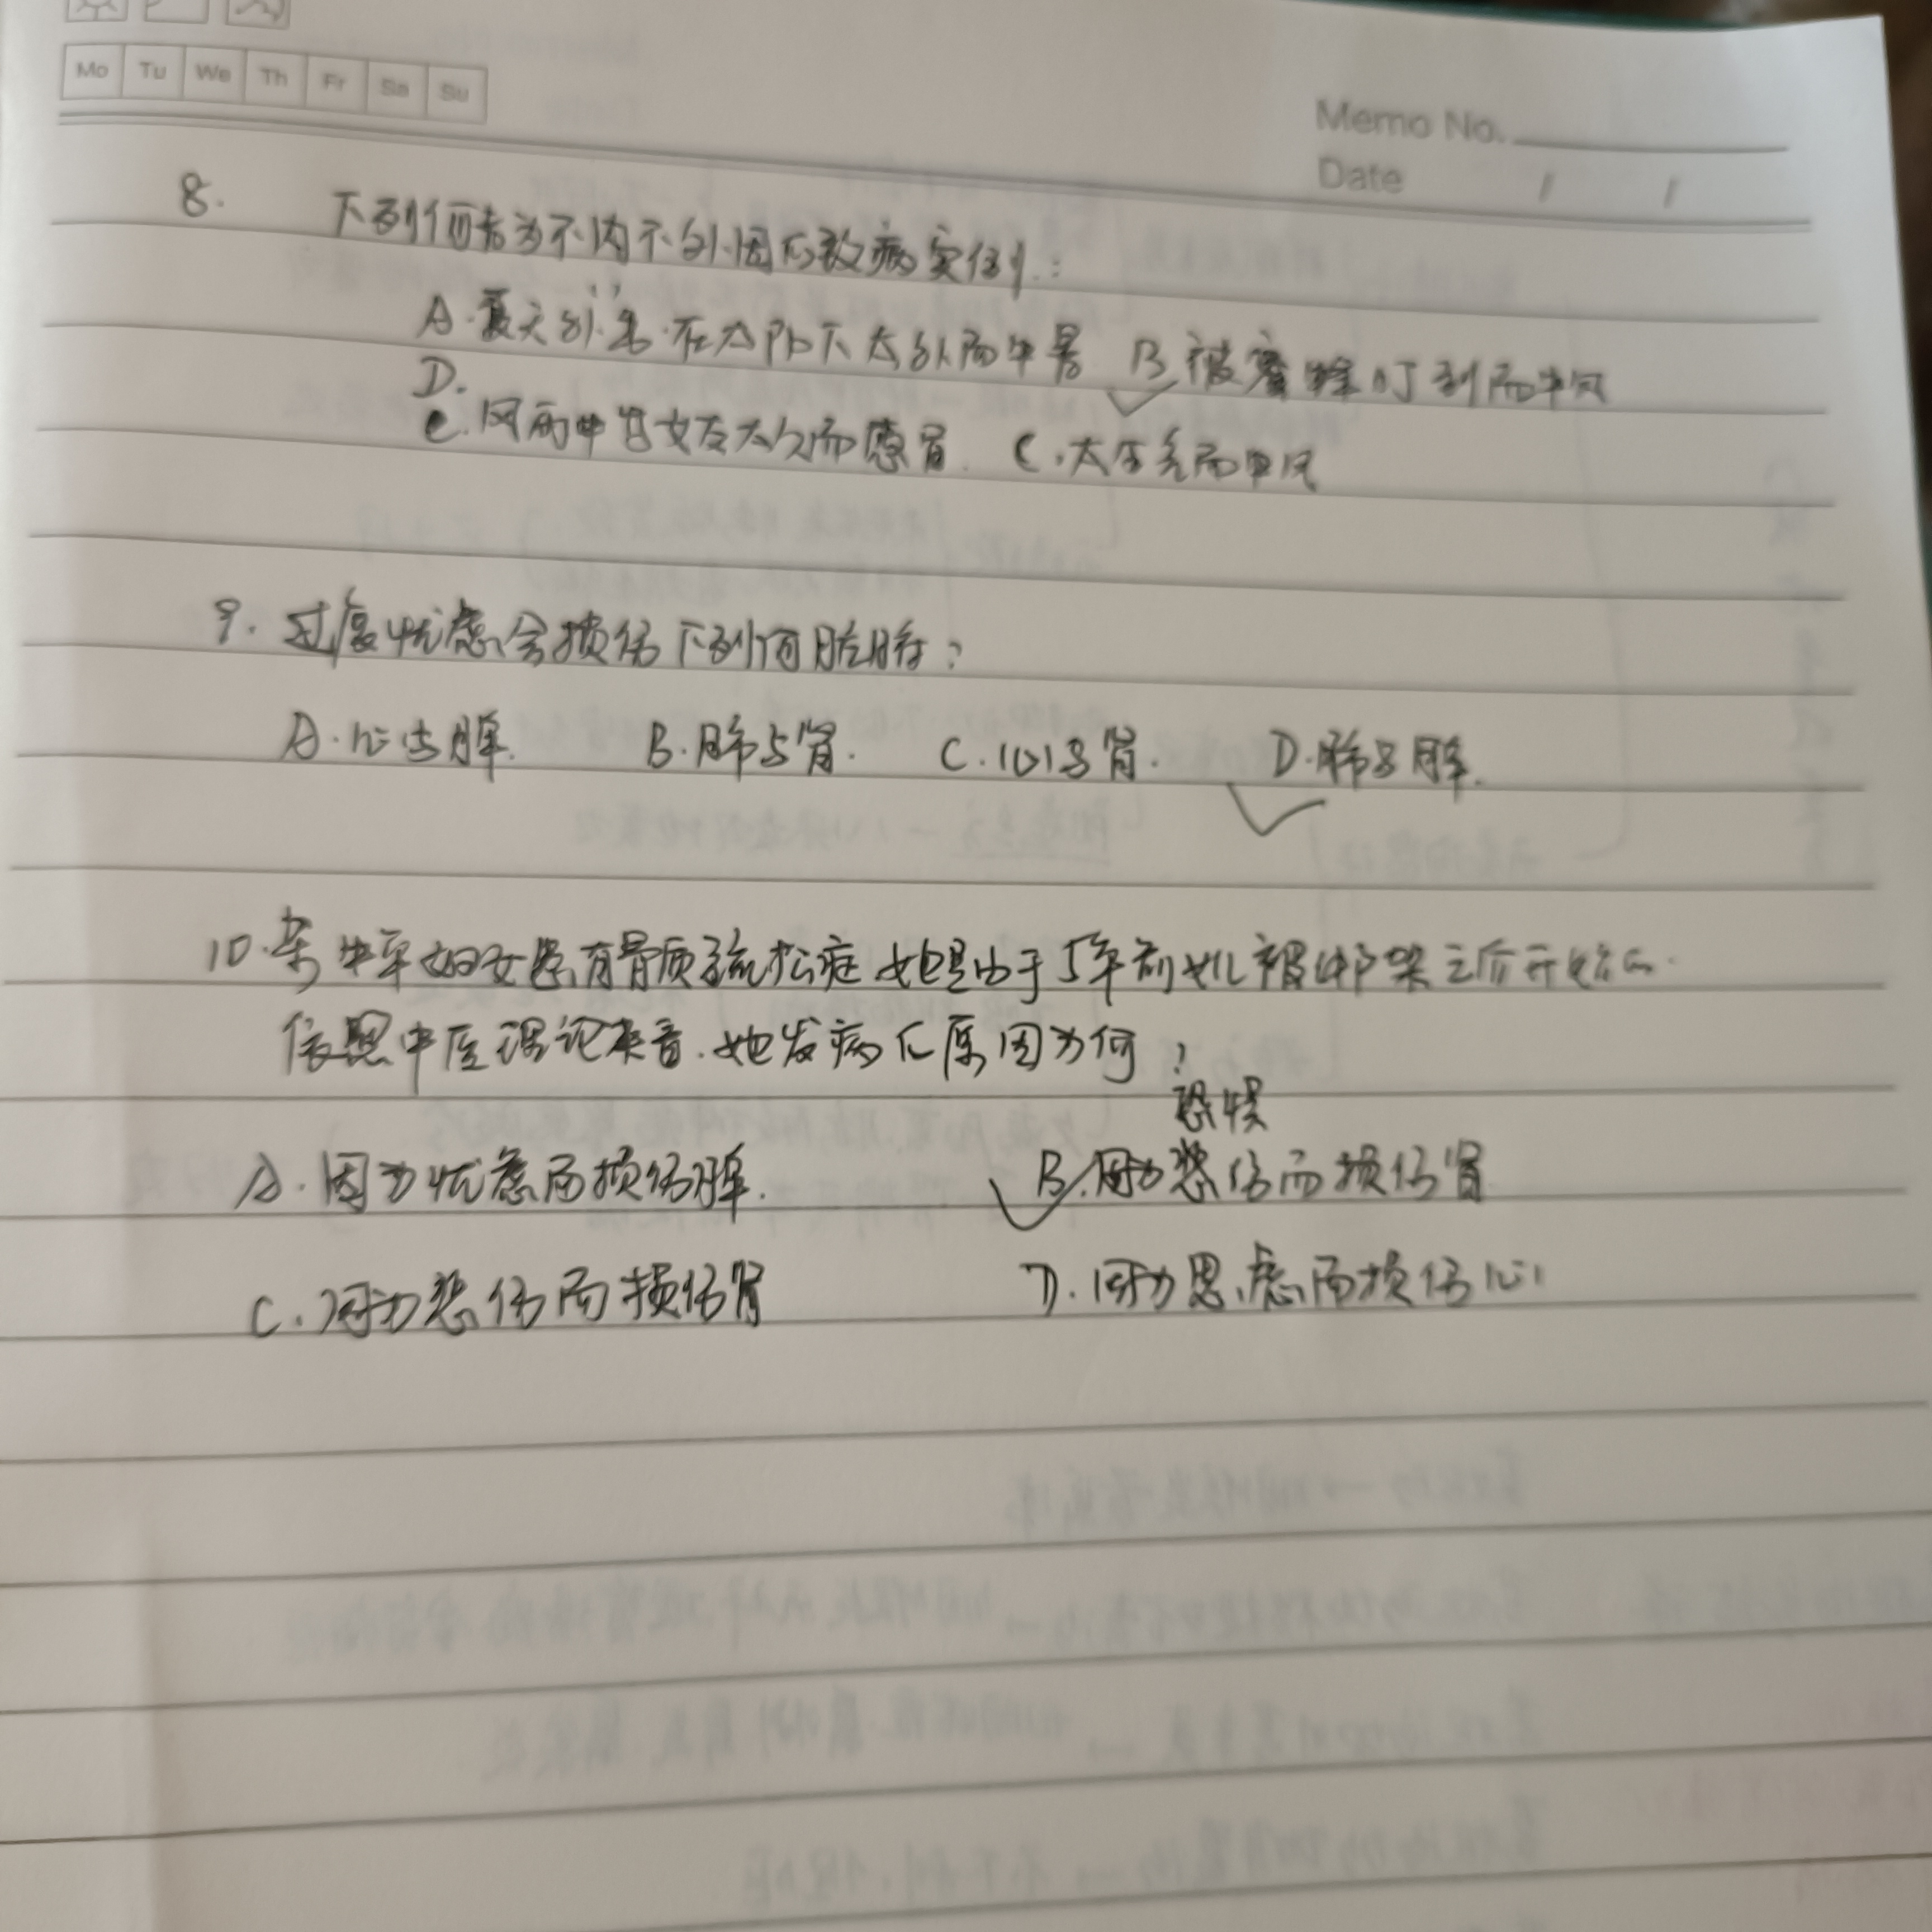 Mo Tu We Th Fr Sa Su
Memo No.
Date / /
8. 下列何者为不内不外因所致病实例:
A. 夏天外出在太阳下太久而中暑 B. 被蜜蜂叮到而中风
D.
C. 风雨中等女友太久而感冒. C. 太生气而中风
9. 过度忧虑会损伤下列何脏腑?
A. 心与脾. B. 肺与肾. C. 心与肾. D. 肺与脾.
10. 某中年妇女患有骨质疏松症 她是由于5年前女儿被绑架之后开始的.
依照中医理论来看. 她发病的原因为何?
恐惧
A. 因为忧虑而损伤脾. B. 因为悲伤而损伤肾
C. 因为悲伤而损伤肾 D. 因为思虑而损伤心